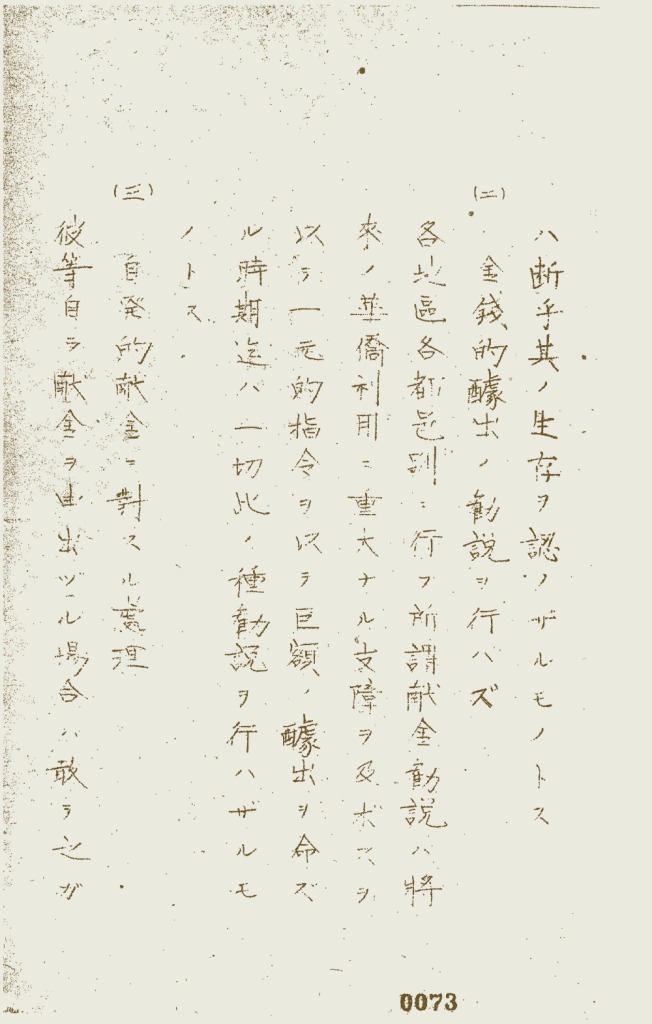 ハ断乎其ノ生存ヲ認メザルモノトス
(二) 金錢的醵出ノ勧説ヲ行ハズ
各地區各都邑別ニ行フ所謂献金勧説ハ將
來ノ華僑利用ニ重大ナル支障ヲ及ボスヲ
以テ一元的指令ヲ以テ巨額ノ醵出ヲ命ズ
ル時期迄ハ一切此ノ種勧説ヲ行ハザルモ
ノトス
(三) 自発的献金ニ對スル處理
彼等自ラ献金ヲ申出ヅル場合ハ敢テ之ガ
0073